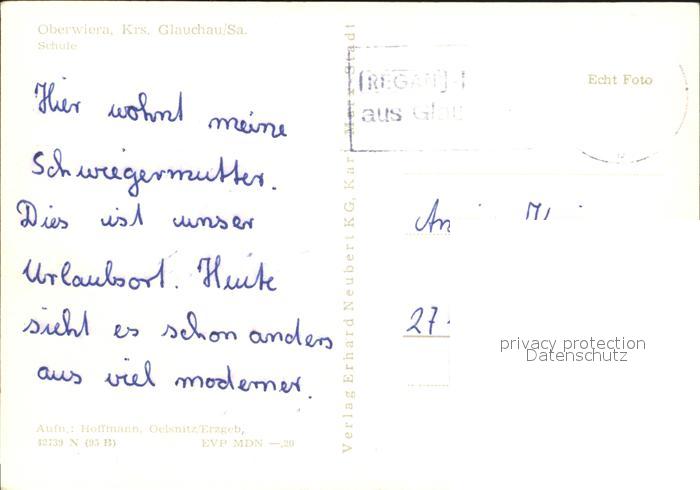 Oberwiera, Krs. Glauchau/Sa.
Schule
Hier wohnt meine
Schwiegermutter.
Dies ist unser
Urlaubsort. Heute
sieht es schon anders
aus viel moderner.
Aufn.: Hoffmann, Oelsnitz/Erzgeb,
42739 N (95 B) EVP MDN —,20
Verlag Erhard Neubert KG, Karl-Marx-Stadt
aus
Echt Foto
An
27
privacy protection
Datenschutz